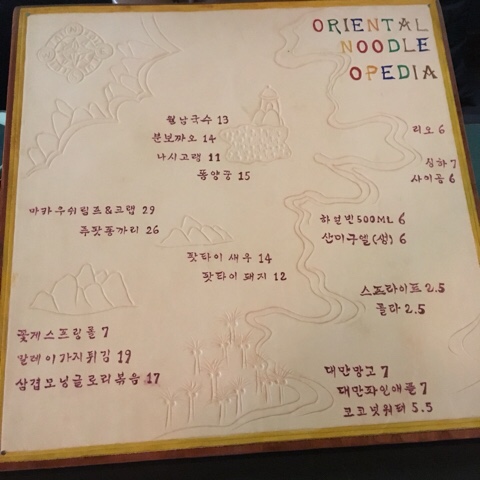 ORIENTAL
NOODLE
OPEDIA
월남국수 13
분보까오 14
나시고랭 11
똠양궁 15
리오 6
싱하 7
사이공 6
마카우쉬림프&크랩 29
쭈팟퐁까리 26
하얼빈 500ML 6
산미구엘(생) 6
팟타이 새우 14
팟타이 돼지 12
스프라이트 2.5
콜라 2.5
꽃게스프링롤 7
말레이가지튀김 19
삼겹모닝글로리볶음 17
대만망고 7
대만파인애플 7
코코넛워터 5.5